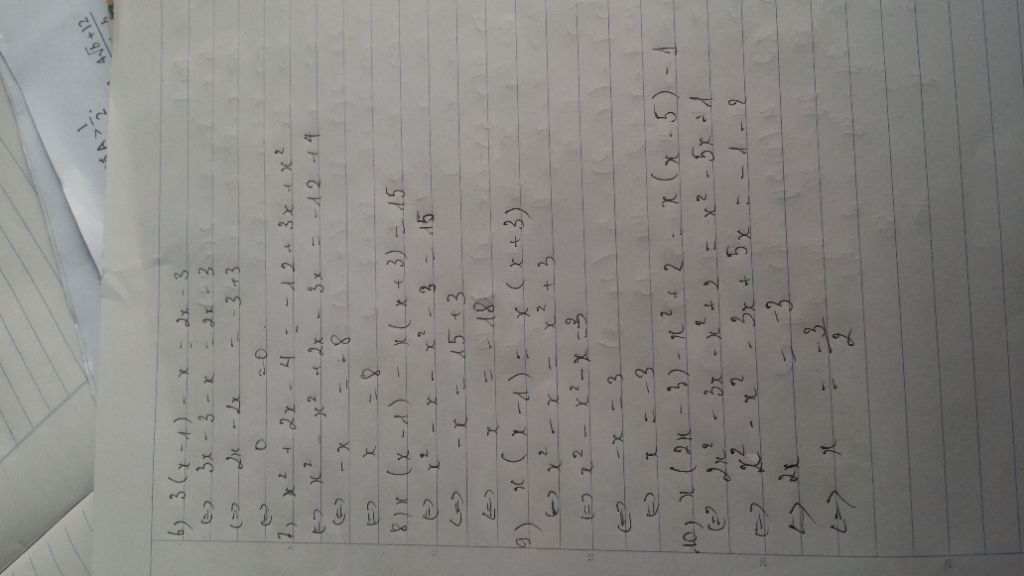 6) 3(x-1) - x = 2x - 3
<=> 3x - 3 - x = 2x + 3
<=> 2x - 2x = -3 + 3
<=> 0 = 0
7) x² + 2x - 4 = -12 + 3x + x²
<=> x² - x² + 2x - 3x = -12 + 4
<=> -x = -8
<=> x = 8
8) x(x-1) - x(x+3) = 15
<=> x² - x - x² - 3 = 15
<=> -x = 15 + 3
<=> x = 18
9) x(x-1) = x(x+3)
<=> x² - x = x² + 3
<=> x² - x² - x = 3
<=> -x = 3
<=> x = -3
10) x(2x - 3) - x² + 2 = x(x - 5) - 1
<=> 2x² - 3x - x² + 2 = x² - 5x + 1
<=> x² - x² - 3x + 5x = -1 - 2
<=> 2x = -3
<=> x = -3/2